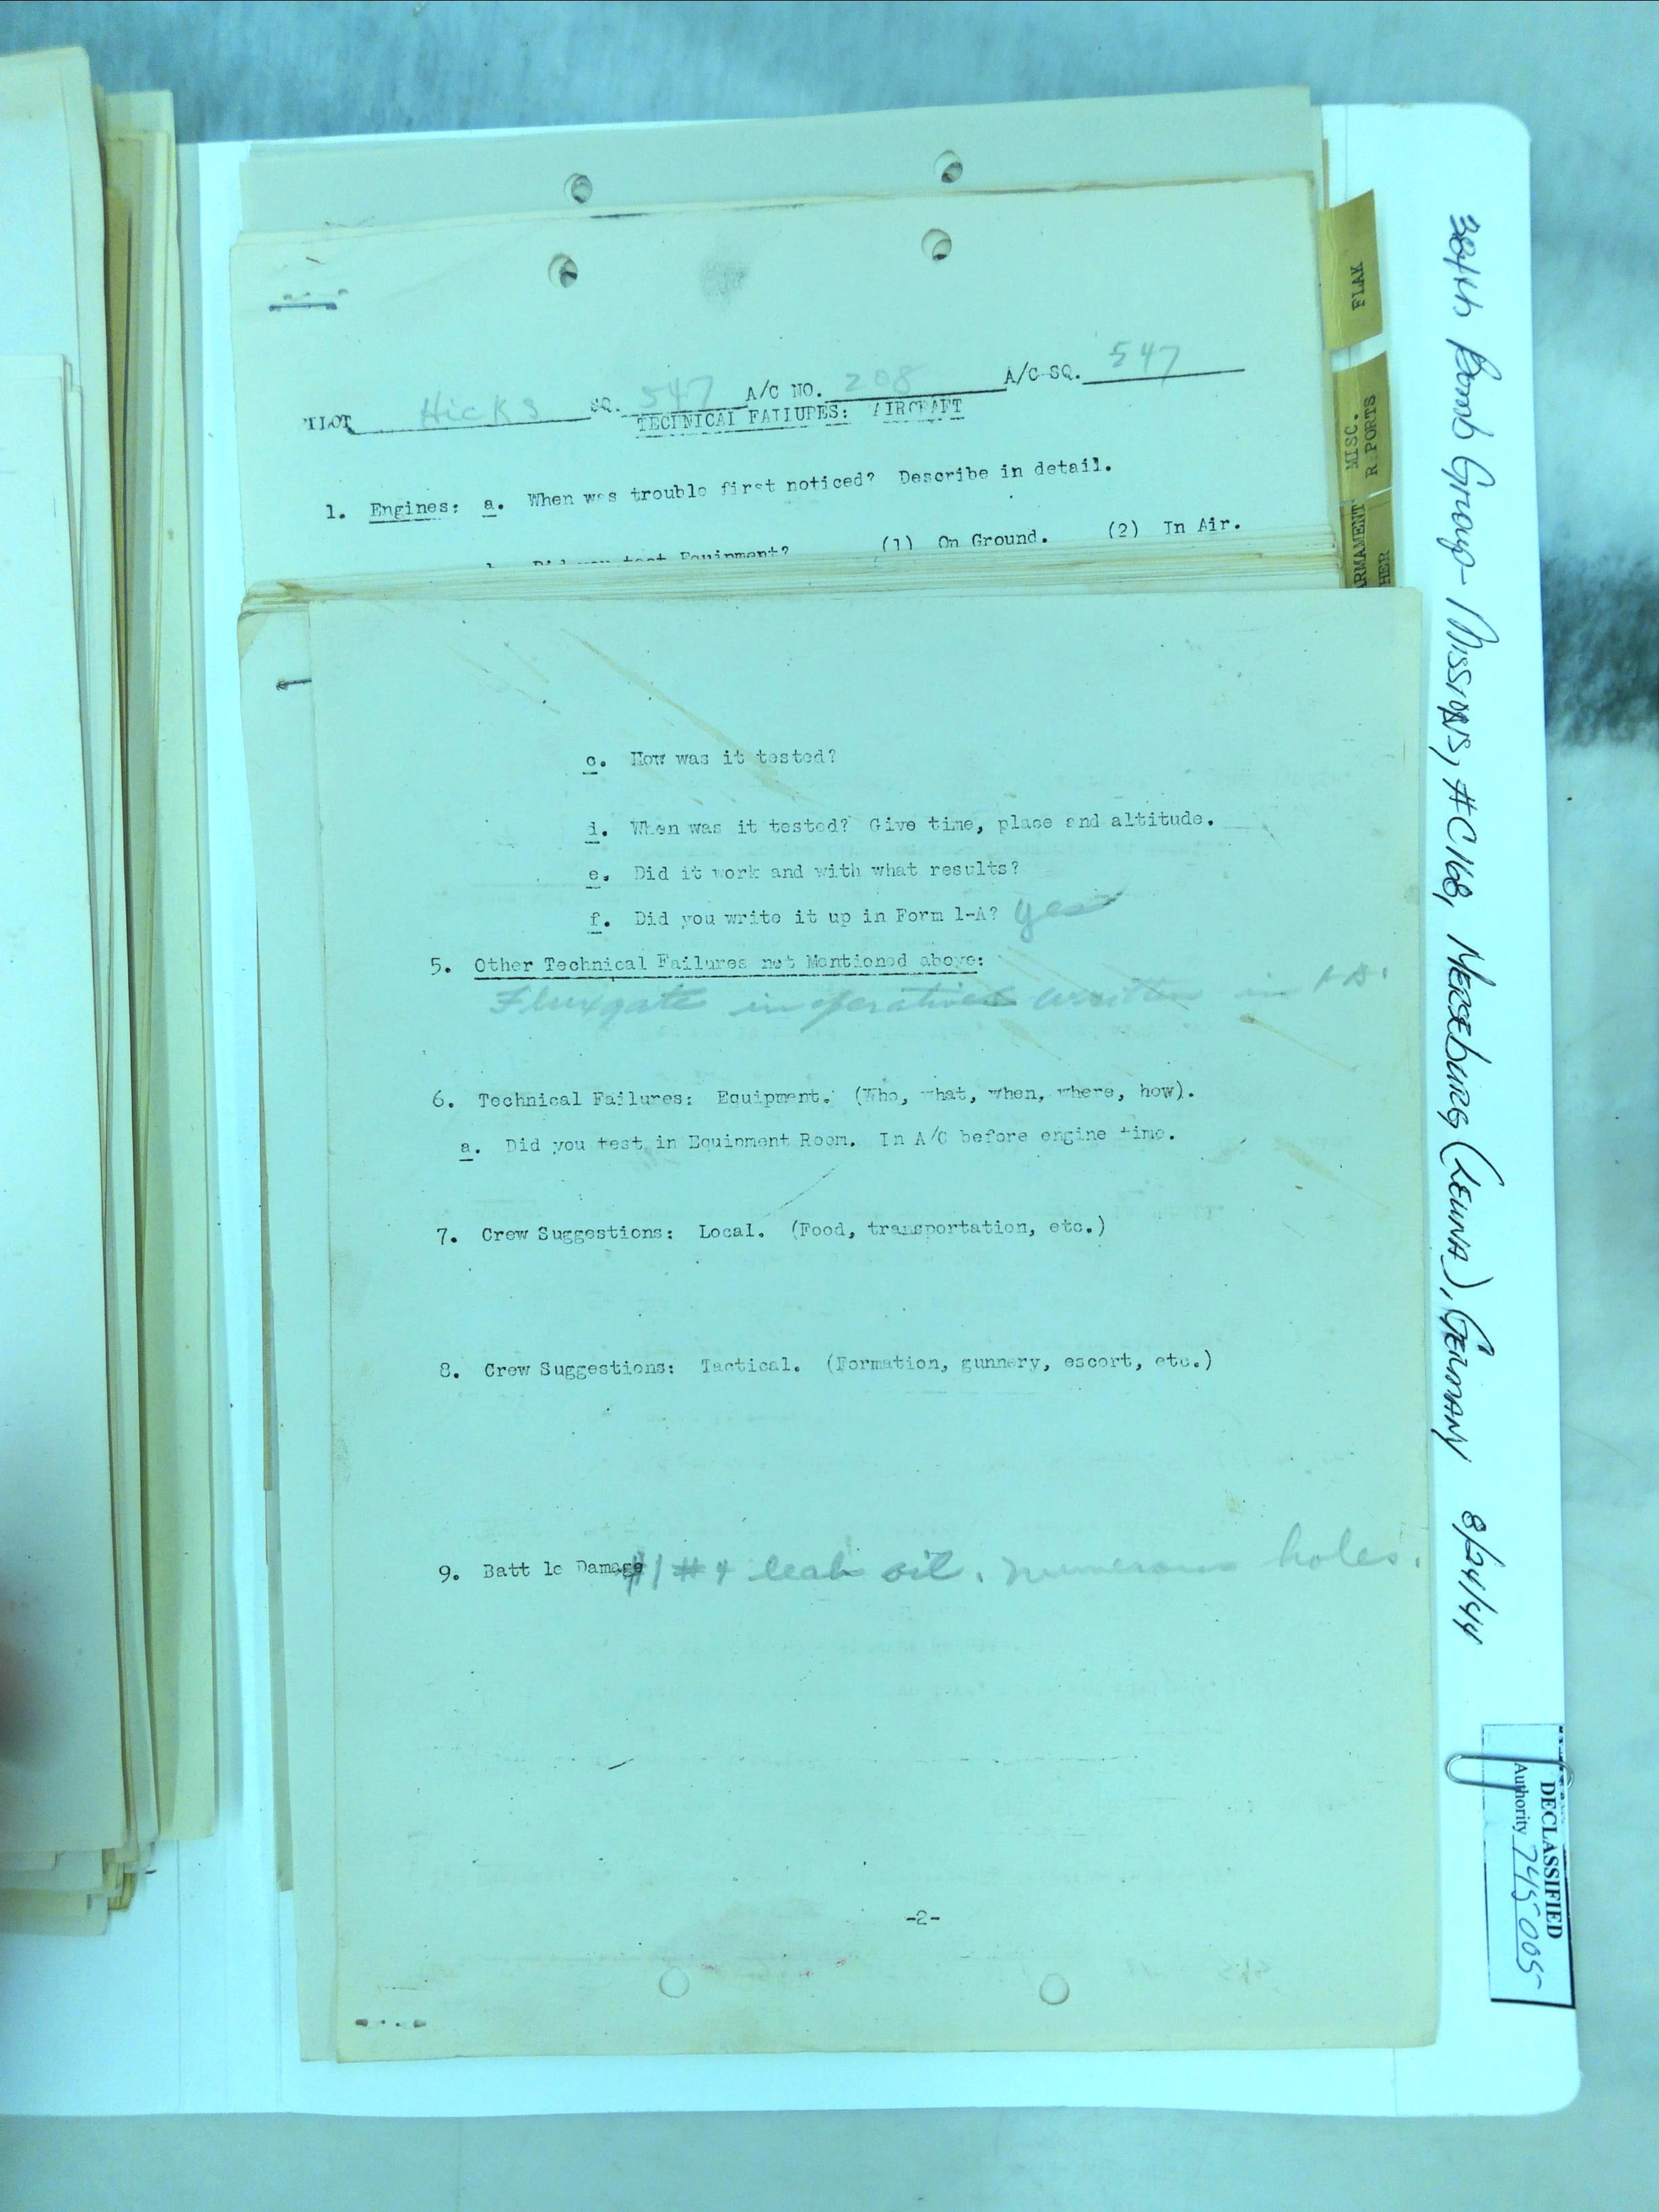 PILOT Hicks SQ. 547 A/C NO. 208 A/C SQ. 547
TECHNICAL FAILURES: AIRCRAFT
1. Engines: a. When was trouble first noticed? Describe in detail.
Did you test Equipment? (1) On Ground. (2) In Air.
c. How was it tested?
d. When was it tested? Give time, place and altitude.
e. Did it work and with what results?
f. Did you write it up in Form 1-A? yes
5. Other Technical Failures not Mentioned above:
Fluxgate inoperative written in
6. Technical Failures: Equipment. (Who, what, when, where, how).
a. Did you test in Equipment Room. In A/C before engine time.
7. Crew Suggestions: Local. (Food, transportation, etc.)
8. Crew Suggestions: Tactical. (Formation, gunnery, escort, etc.)
9. Batt le Damage #1 #4 leak oil. numerous holes.
-2-
FLAK
MISC.
R PORTS
ARMAMENT
HER
384th Bomb Group - Missions, #C168, Merseburg (Leuna), Germany 8/24/44
DECLASSIFIED
Authority 745005